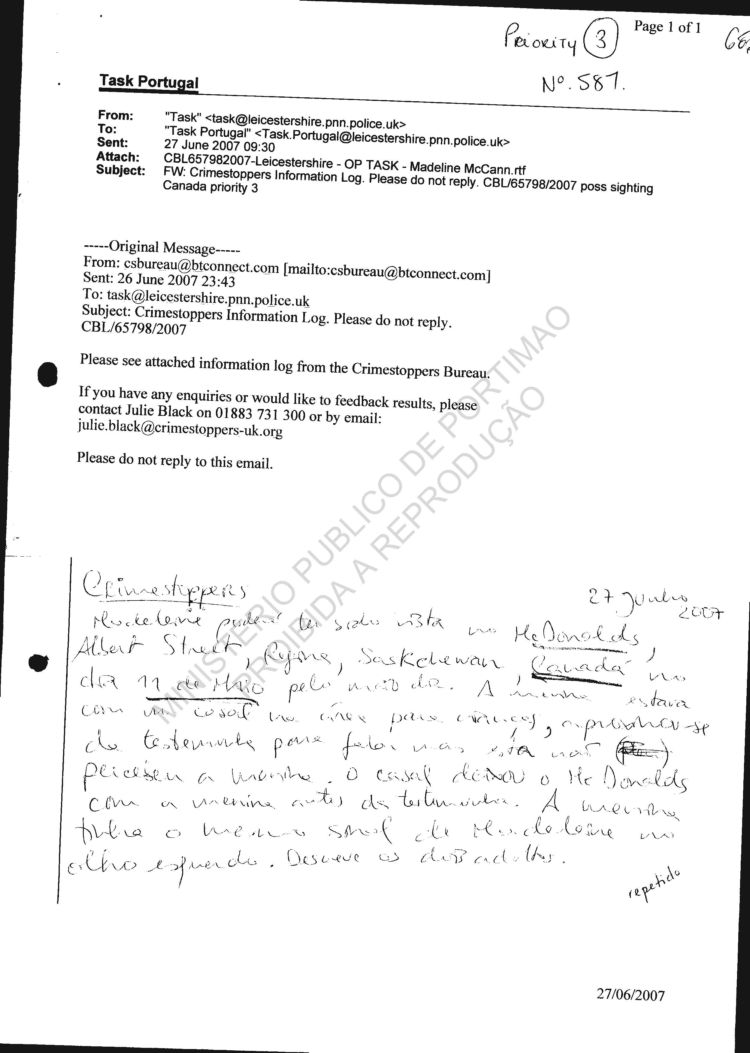 PRIORITY 3
Page 1 of 1
Nº. 587.
Task Portugal
From: "Task" <task@leicestershire.pnn.police.uk>
To: "Task Portugal" <Task.Portugal@leicestershire.pnn.police.uk>
Sent: 27 June 2007 09:30
Attach: CBL657982007-Leicestershire - OP TASK - Madeline McCann.rtf
Subject: FW: Crimestoppers Information Log. Please do not reply. CBL/65798/2007 poss sighting
Canada priority 3
-----Original Message-----
From: csbureau@btconnect.com [mailto:csbureau@btconnect.com]
Sent: 26 June 2007 23:43
To: task@leicestershire.pnn.police.uk
Subject: Crimestoppers Information Log. Please do not reply.
CBL/65798/2007
Please see attached information log from the Crimestoppers Bureau.
If you have any enquiries or would like to feedback results, please
contact Julie Black on 01883 731 300 or by email:
julie.black@crimestoppers-uk.org
Please do not reply to this email.
MINISTERIO PUBLICO DE PORTIMAO
PROIBIDA A REPRODUÇÃO
Crimestoppers
27 Junho
2007
Madeleine poderá ter sido vista no McDonalds,
Albert Street, Regina, Saskchewan, Canadá no
dia 11 de Maio pelo meio dia. A menina estava
com um casal na área para crianças, aproximou-se
da testemunha para falar mas esta não
percebeu a menina. O casal deixou o McDonalds
com a menina antes da testemunha. A menina
tinha o mesmo sinal de Madeleine no
olho esquerdo. Descreve os dois adultos.
repetido
27/06/2007